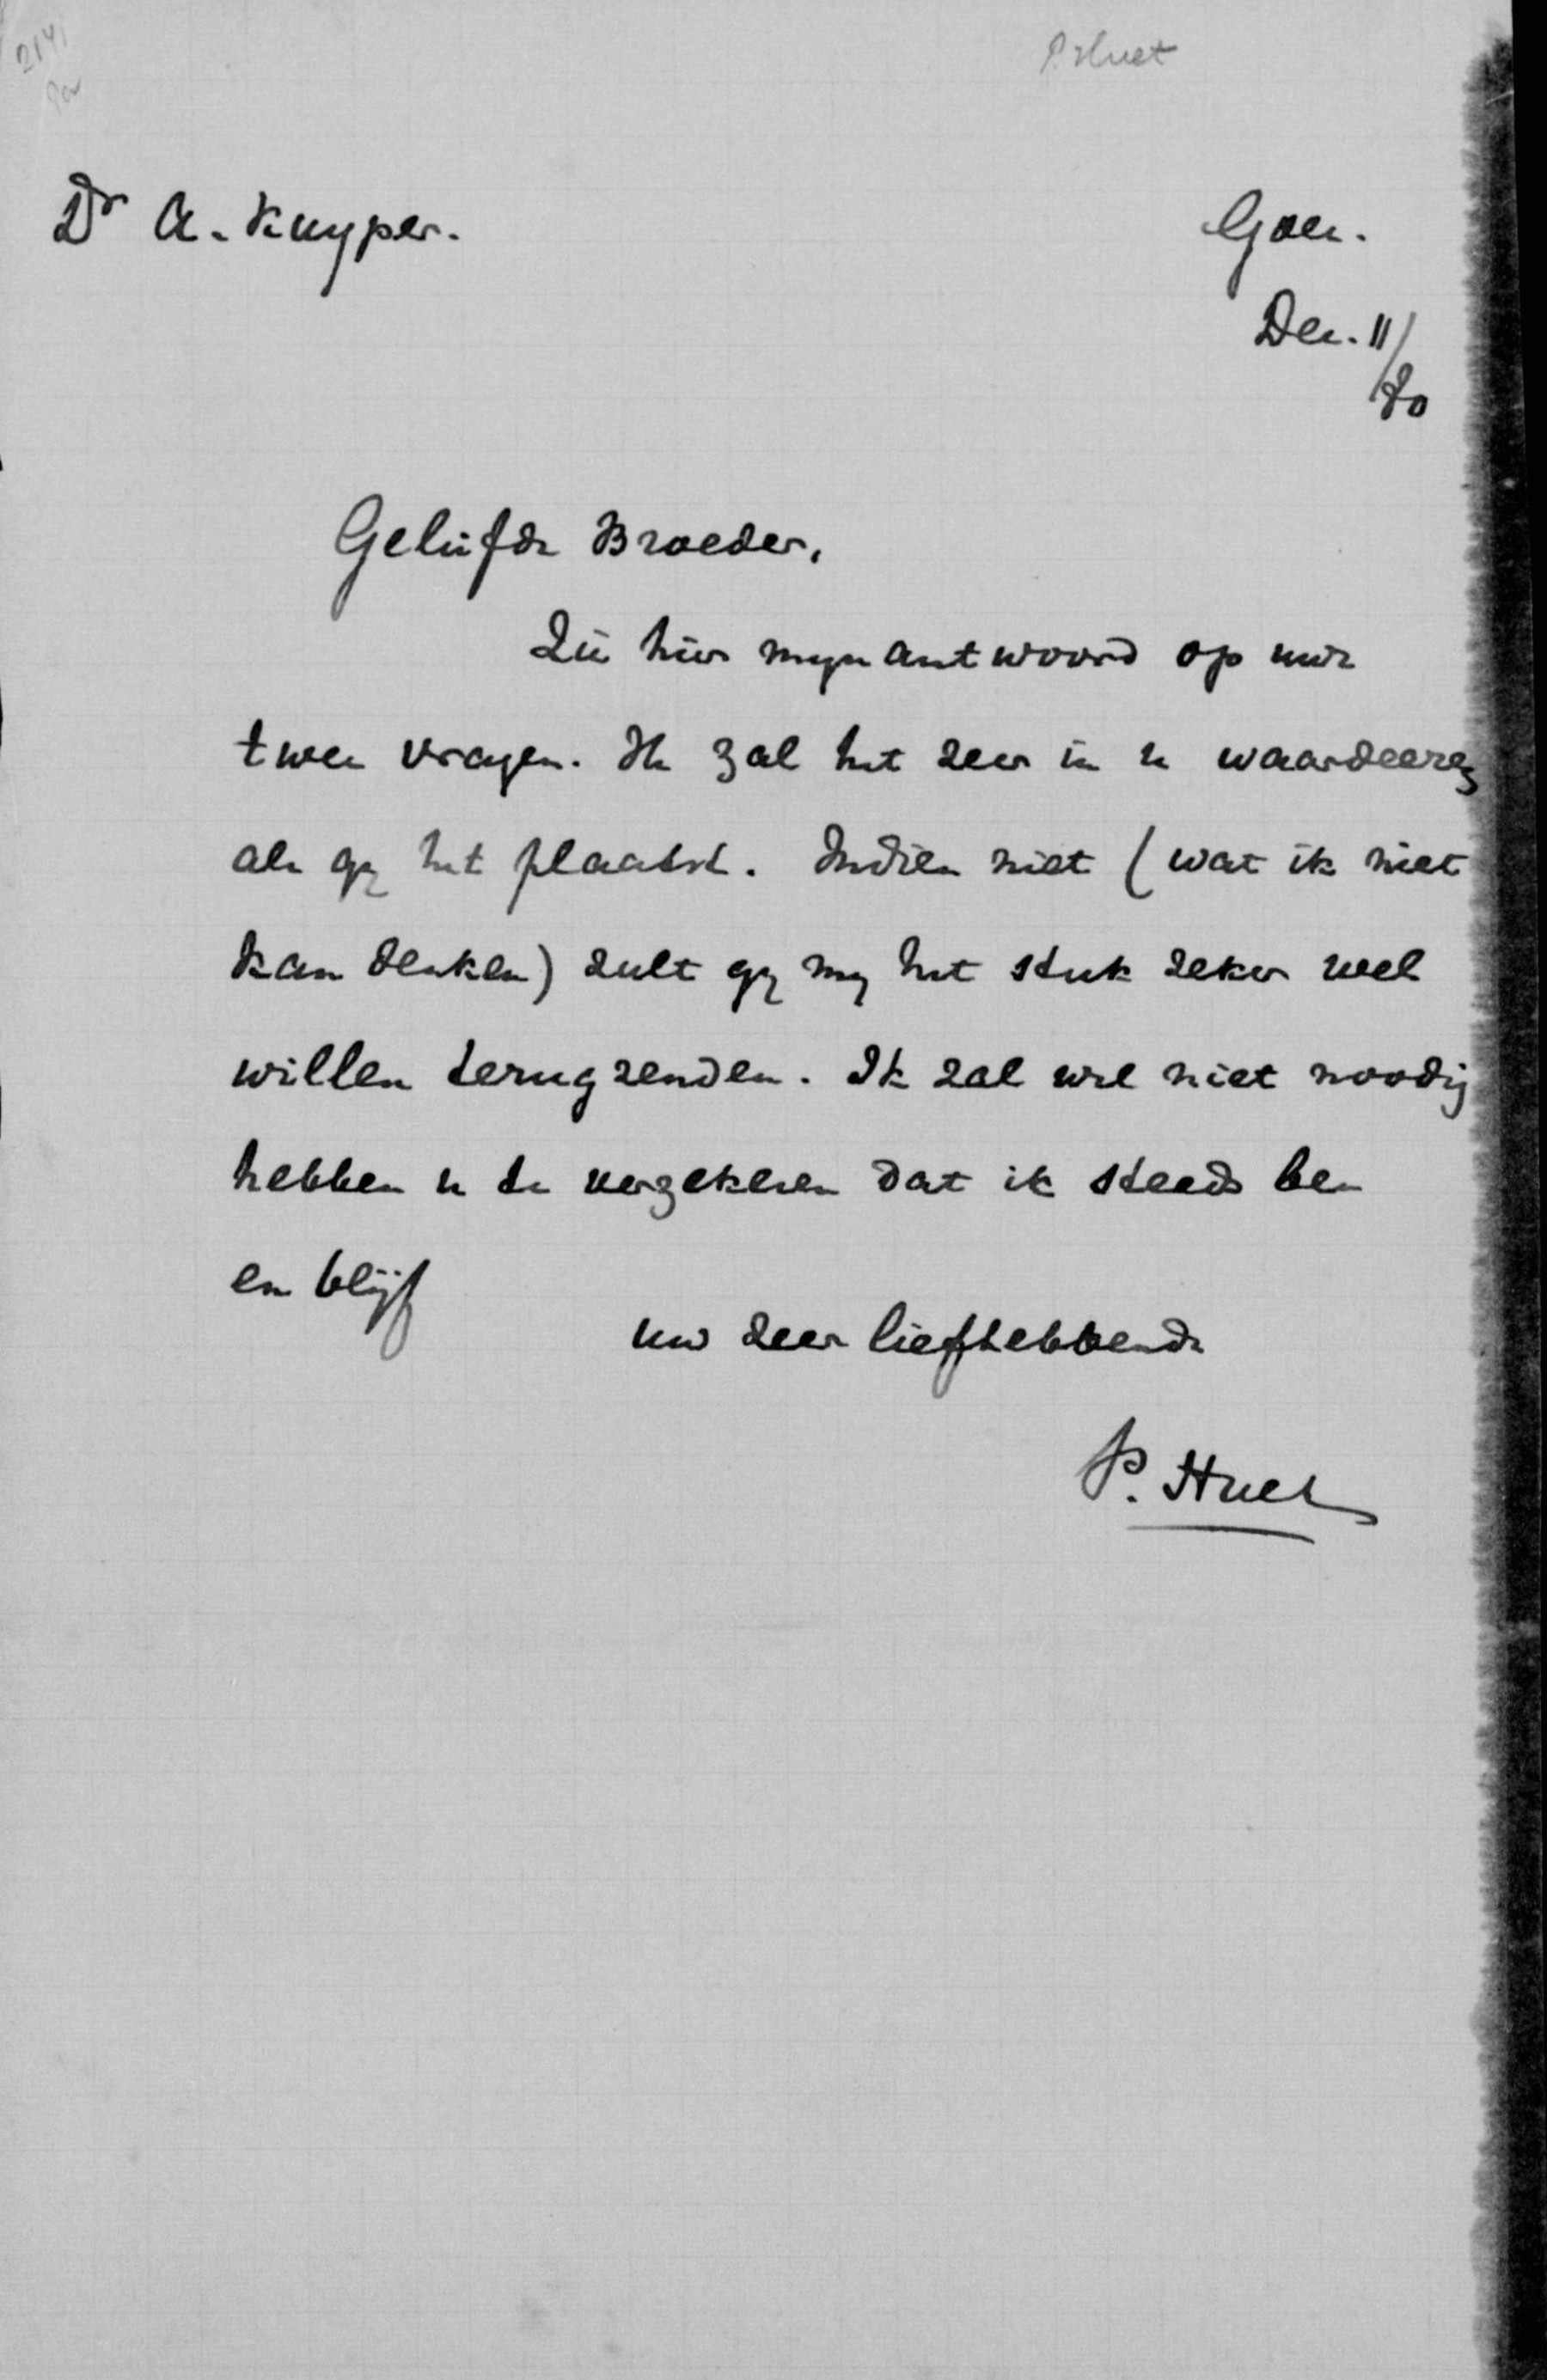 P. Huet
2141
Dr A. Kuyper.
Goes.
Dec. 11/80
Geliefde Broeder,
Zie hier mijn antwoord op uwe
twee vragen. Ik zal het zeer in u waardeeren
als gij het plaatst. Indien niet (wat ik niet
kan denken) zult gij mij het stuk zeker wel
willen terugzenden. Ik zal wel niet noodig
hebben u te verzekeren dat ik steeds ben
en blijf
uw zeer liefhebbende
P. Huet